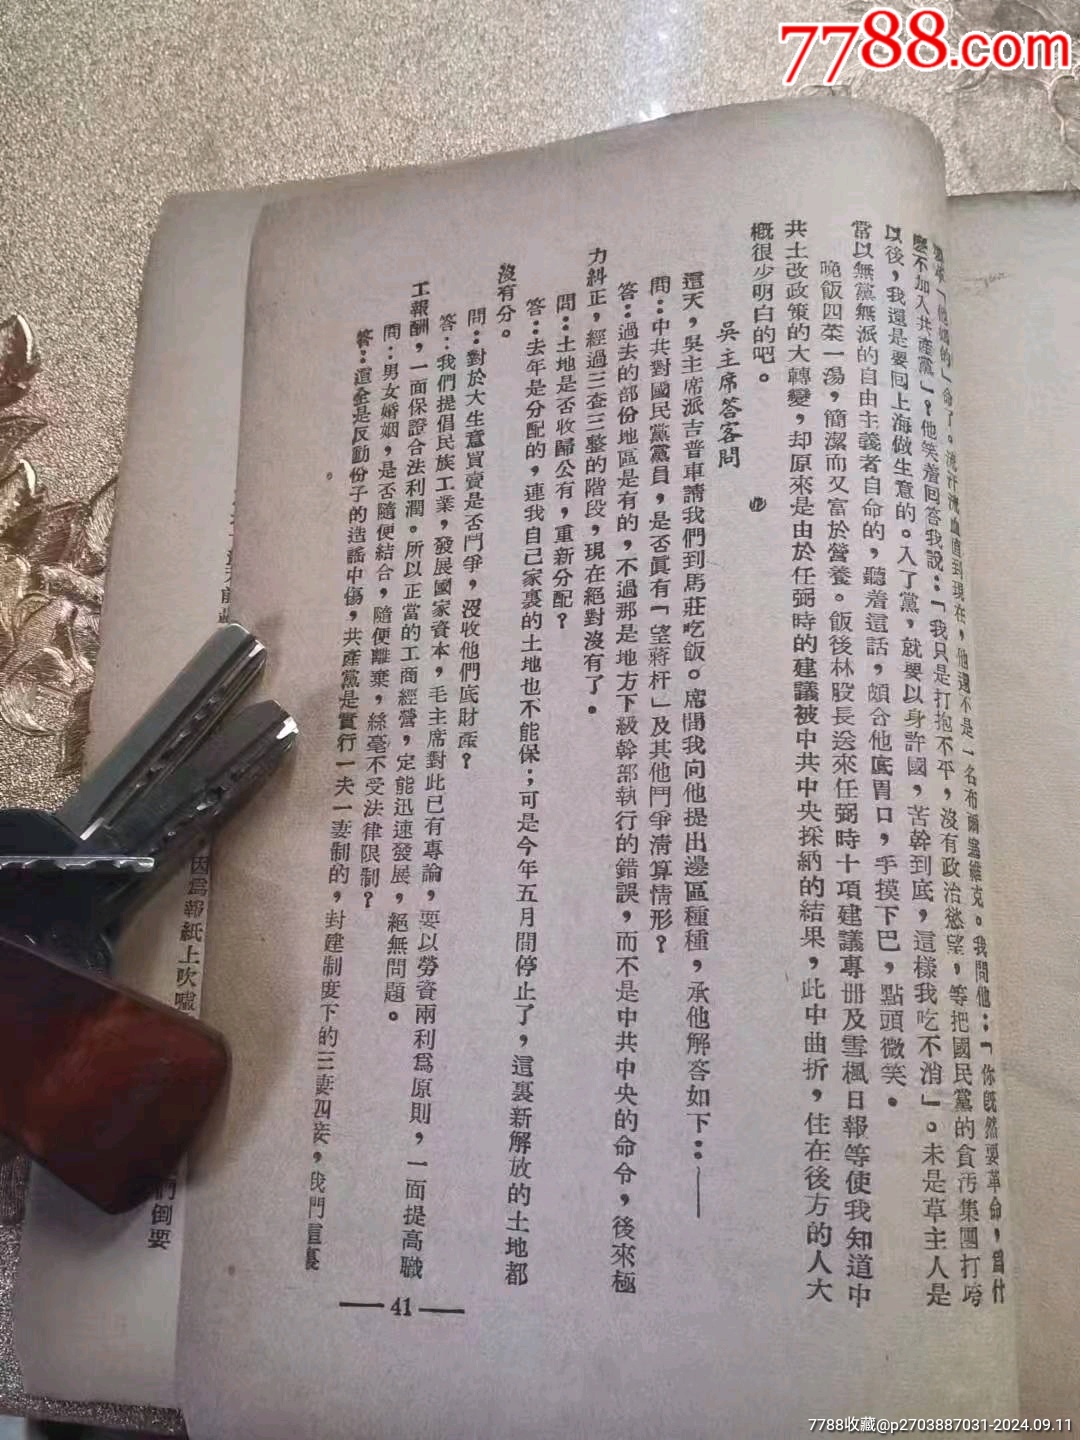 7788.com
命了。流汗流血值到現在，他還不是一名布爾塞維克。我問他：「你既然要革命，爲什
麽不加入共產黨」？他笑着回答我說：「我只是打抱不平，沒有政治慾望，等把國民黨的貪汚集團打垮
以後，我還是要回上海做生意的。入了黨，就要以身許國，苦幹到底，這樣我吃不消」。未是草主人是
常以無黨無派的自由主義者自命的，聽着這話，頗合他底胃口，手摸下巴，點頭微笑。
晚飯四菜一湯，簡潔而又富於營養。飯後林股長送來任弼時十項建議專册及雪楓日報等使我知道中
共土改政策的大轉變，却原來是由於任弼時的建議被中共中央採納的結果，此中曲折，住在後方的人大
概很少明白的吧。
吳主席答客問
這天，吳主席派吉普車請我們到馬莊吃飯。席間我向他提出邊區種種，承他解答如下：——
問：中共對國民黨黨員，是否眞有「望蔣杆」及其他鬥爭清算情形？
答：過去的部份地區是有的，不過那是地方下級幹部執行的錯誤，而不是中共中央的命令，後來極
力糾正，經過三查三整的階段，現在絕對沒有了。
問：土地是否收歸公有，重新分配？
答：去年是分配的，連我自己家裏的土地也不能保；可是今年五月間停止了，這裏新解放的土地都
沒有分。
問：對於大生意買賣是否鬥爭，沒收他們底財產？
答：我們提倡民族工業，發展國家資本，毛主席對此已有專論，要以勞資兩利爲原則，一面提高職
工報酬，一面保證合法利潤。所以正當的工商經營，定能迅速發展，絕無問題。
問：男女婚姻，是否隨便結合，隨便離棄，絲毫不受法律限制？
答：這全是反動份子的造謠中傷，共產黨是實行一夫一妻制的，封建制度下的三妻四妾，我們這裏
— 41 —
因爲報紙上吹噓
們倒要
7788收藏@p2703887031-2024.09.11